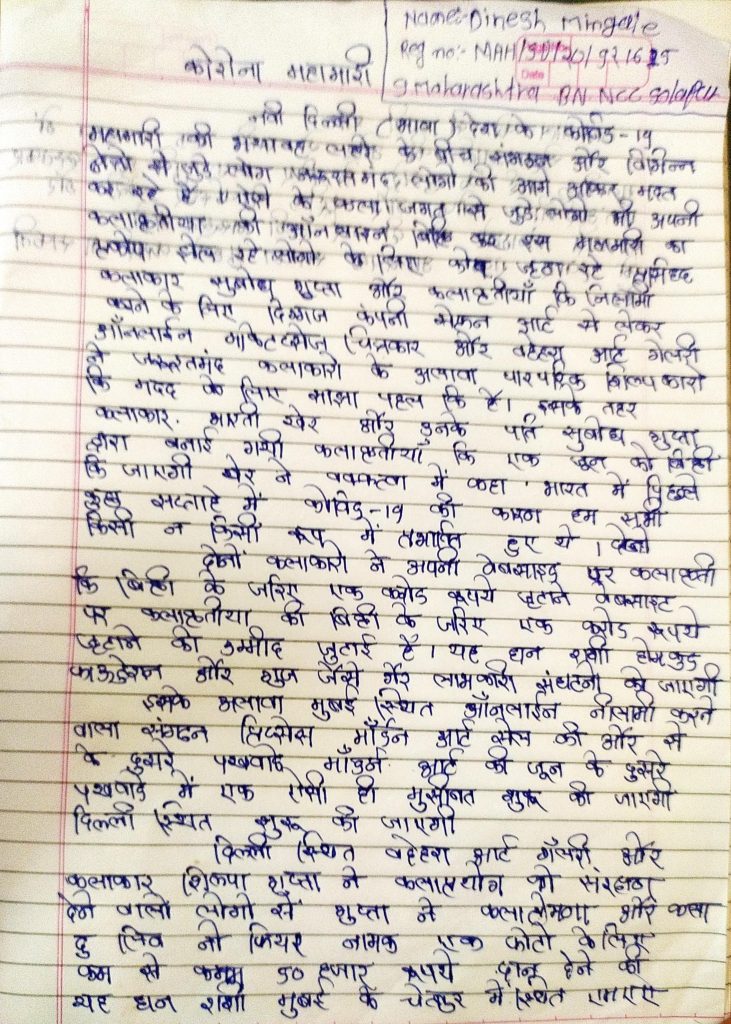 Name:- Dinesh Mingale
Reg no:- MAH/SD/20/921625
9 Maharashtra BN NCC Solapur
कोरोना महामारी
नवी दिल्ली (भाषा) देश के कोविड-19
महामारी की भयावह लहर के बीच संगठन और विभिन्न
क्षेत्रों से जुडे लोग जरूरतमंद लोगो की आगे आकर मदत
कर रहे है। ऐसी के कला जगत से जुडे लोगो भी अपनी
कलाकृतीया की ऑनलाइन बिक्री कर इस महामारी का
प्रकोप झेल रहे लोगो के लिए कोष जुटा रहे प्रसिध्द
कलाकार सुबोध गुप्ता और कलाकृतीयाँ कि निलामी
करने के लिए दिग्गज कंपनी सेफ्रन आर्ट से लेकर
ऑनलाईन मार्केटप्लेज चित्रकार और वदेहरा आर्ट गॅलरी
ने जरूरतमंद कलाकारो के अलावा पारंपारिक शिल्पकारो
कि मदद के लिए साझा पहल कि है। इसके तहत
कलाकार. भारती खेर और उनके पति सुबोध गुप्ता
द्वारा बनाई गयी कलाकृतीयाँ कि एक जून को बिक्री
कि जाएगी खेर ने वक्तव्य में कहा 'भारत में पिछले
कुछ सप्ताहे में कोविद-19 की कारण हम सभी
किसी न किसी रूप में प्रभावित हुए थे। दोनो
दोनों कलाकारो ने अपनी वेबसाइट पर कलाकृती
कि बिक्री के जरिए एक करोड रूपये जुटाने वेबसाइट
पर कलाकृतीया की बिक्री के जरिए एक करोड रूपये
जुटाने की उम्मीद जुटाई है। यह धन राशी हेमकुंड
फाऊंडेशन और गूंज जैसे गैर लाभकारी संघटनो को जाएगी
इसके अलावा मुंबई स्थित ऑनलाईन नीलामी करने
वाला संगठन प्रिंसेप्स मॉर्डन आर्ट सेल की ओर से
के दुसरे पखवाडे मॉडर्न आर्ट की जून के दुसरे
पखवाडे में एक ऐसी ही मुसीबत शुरू की जाएगी
दिल्ली स्थित शुरू की जाएगी
दिल्ली स्थित वदेहरा आर्ट गॅलरी और
कलाकार शिल्पा गुप्ता ने कलासयोग को संरक्षण
देने वालो लोगो से गुप्ता ने कलाप्रेमीयो और कला
दु लिव नो फियर नामक एक फोटो के लिए
कम से कम 50 हजार रूपये दान देने की
यह धन राशी मुंबई के चेंबुर में स्थित एमएए